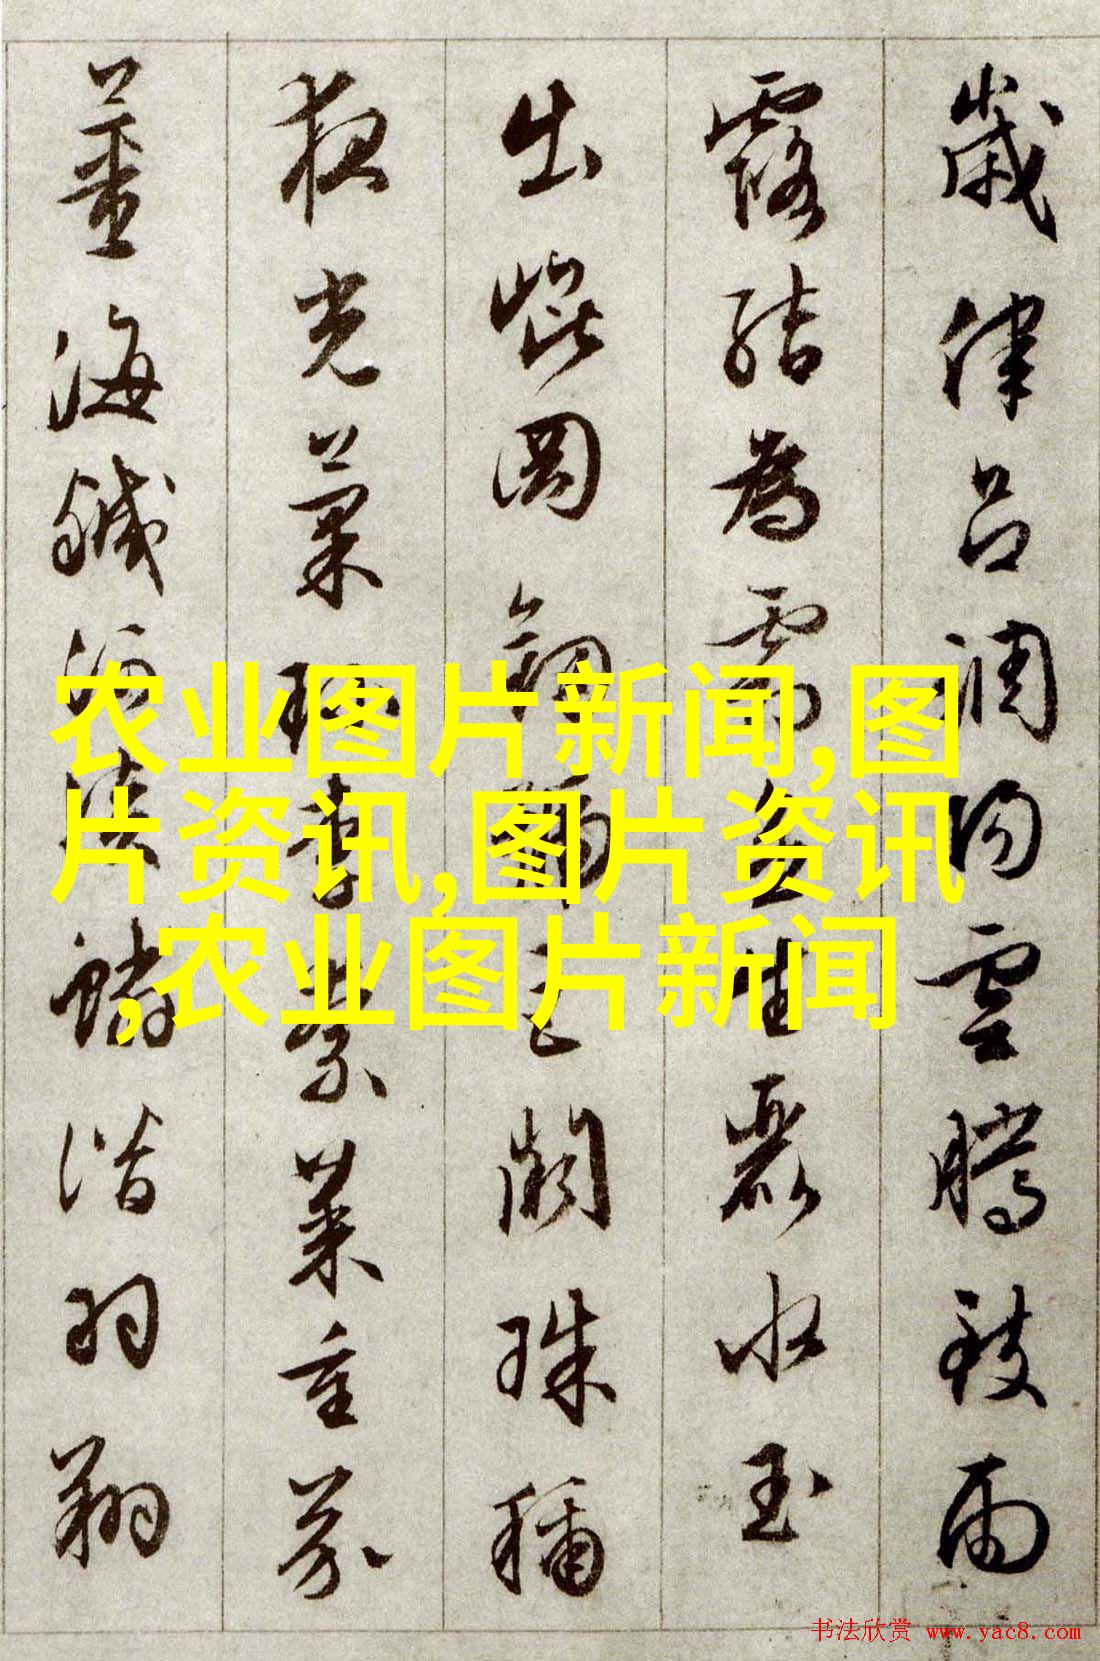 歲律呂調陽雲騰致雨
露結為霜金生麗水玉
出崐岡劍號巨闕珠稱
夜光菓珍李柰菜重芥
薑海鹹河淡鱗潛羽翔
农业图片新闻,图
片资讯,图片资讯
,农业图片新闻
书法欣赏 www.yac8.com